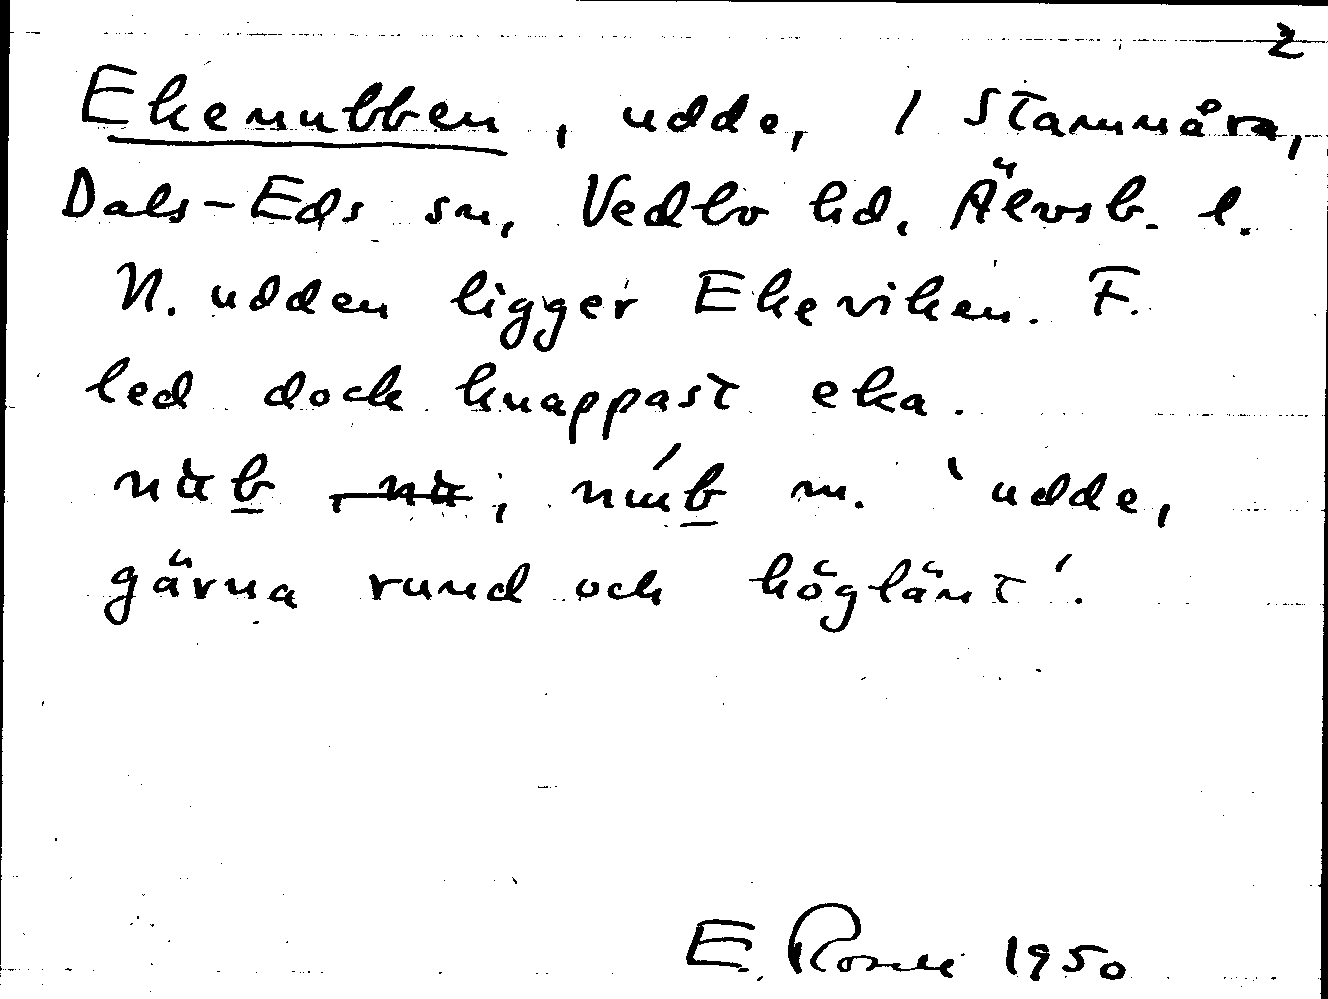 2
Ekenubben, udde, 1 Stammåra,
Dals-Eds sn, Vedbo hd, Älvsb. l.
N. udden ligger Ekeviken. F.
led dock knappast eka.
m. 'udde,
gärna rund och höglänt'.
E. 1950